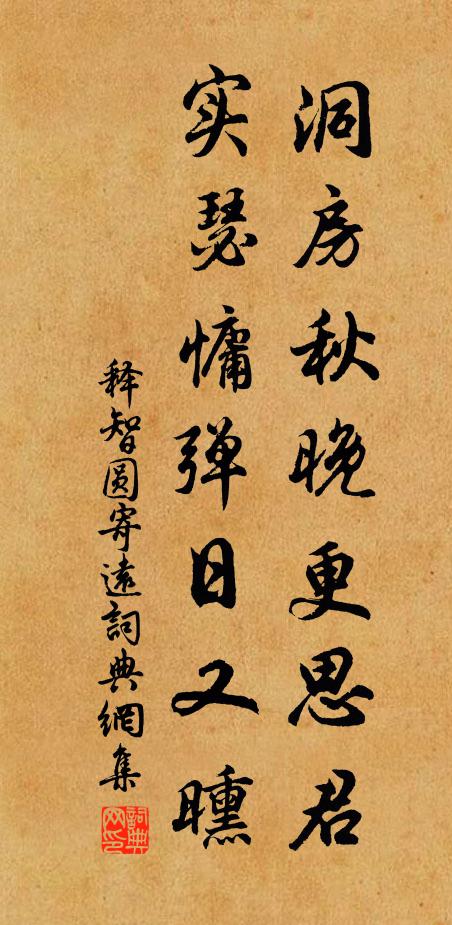 洞房秋晚更思君
实瑟慵弹日又曛
释智圆寄远词典網集
詞典网印